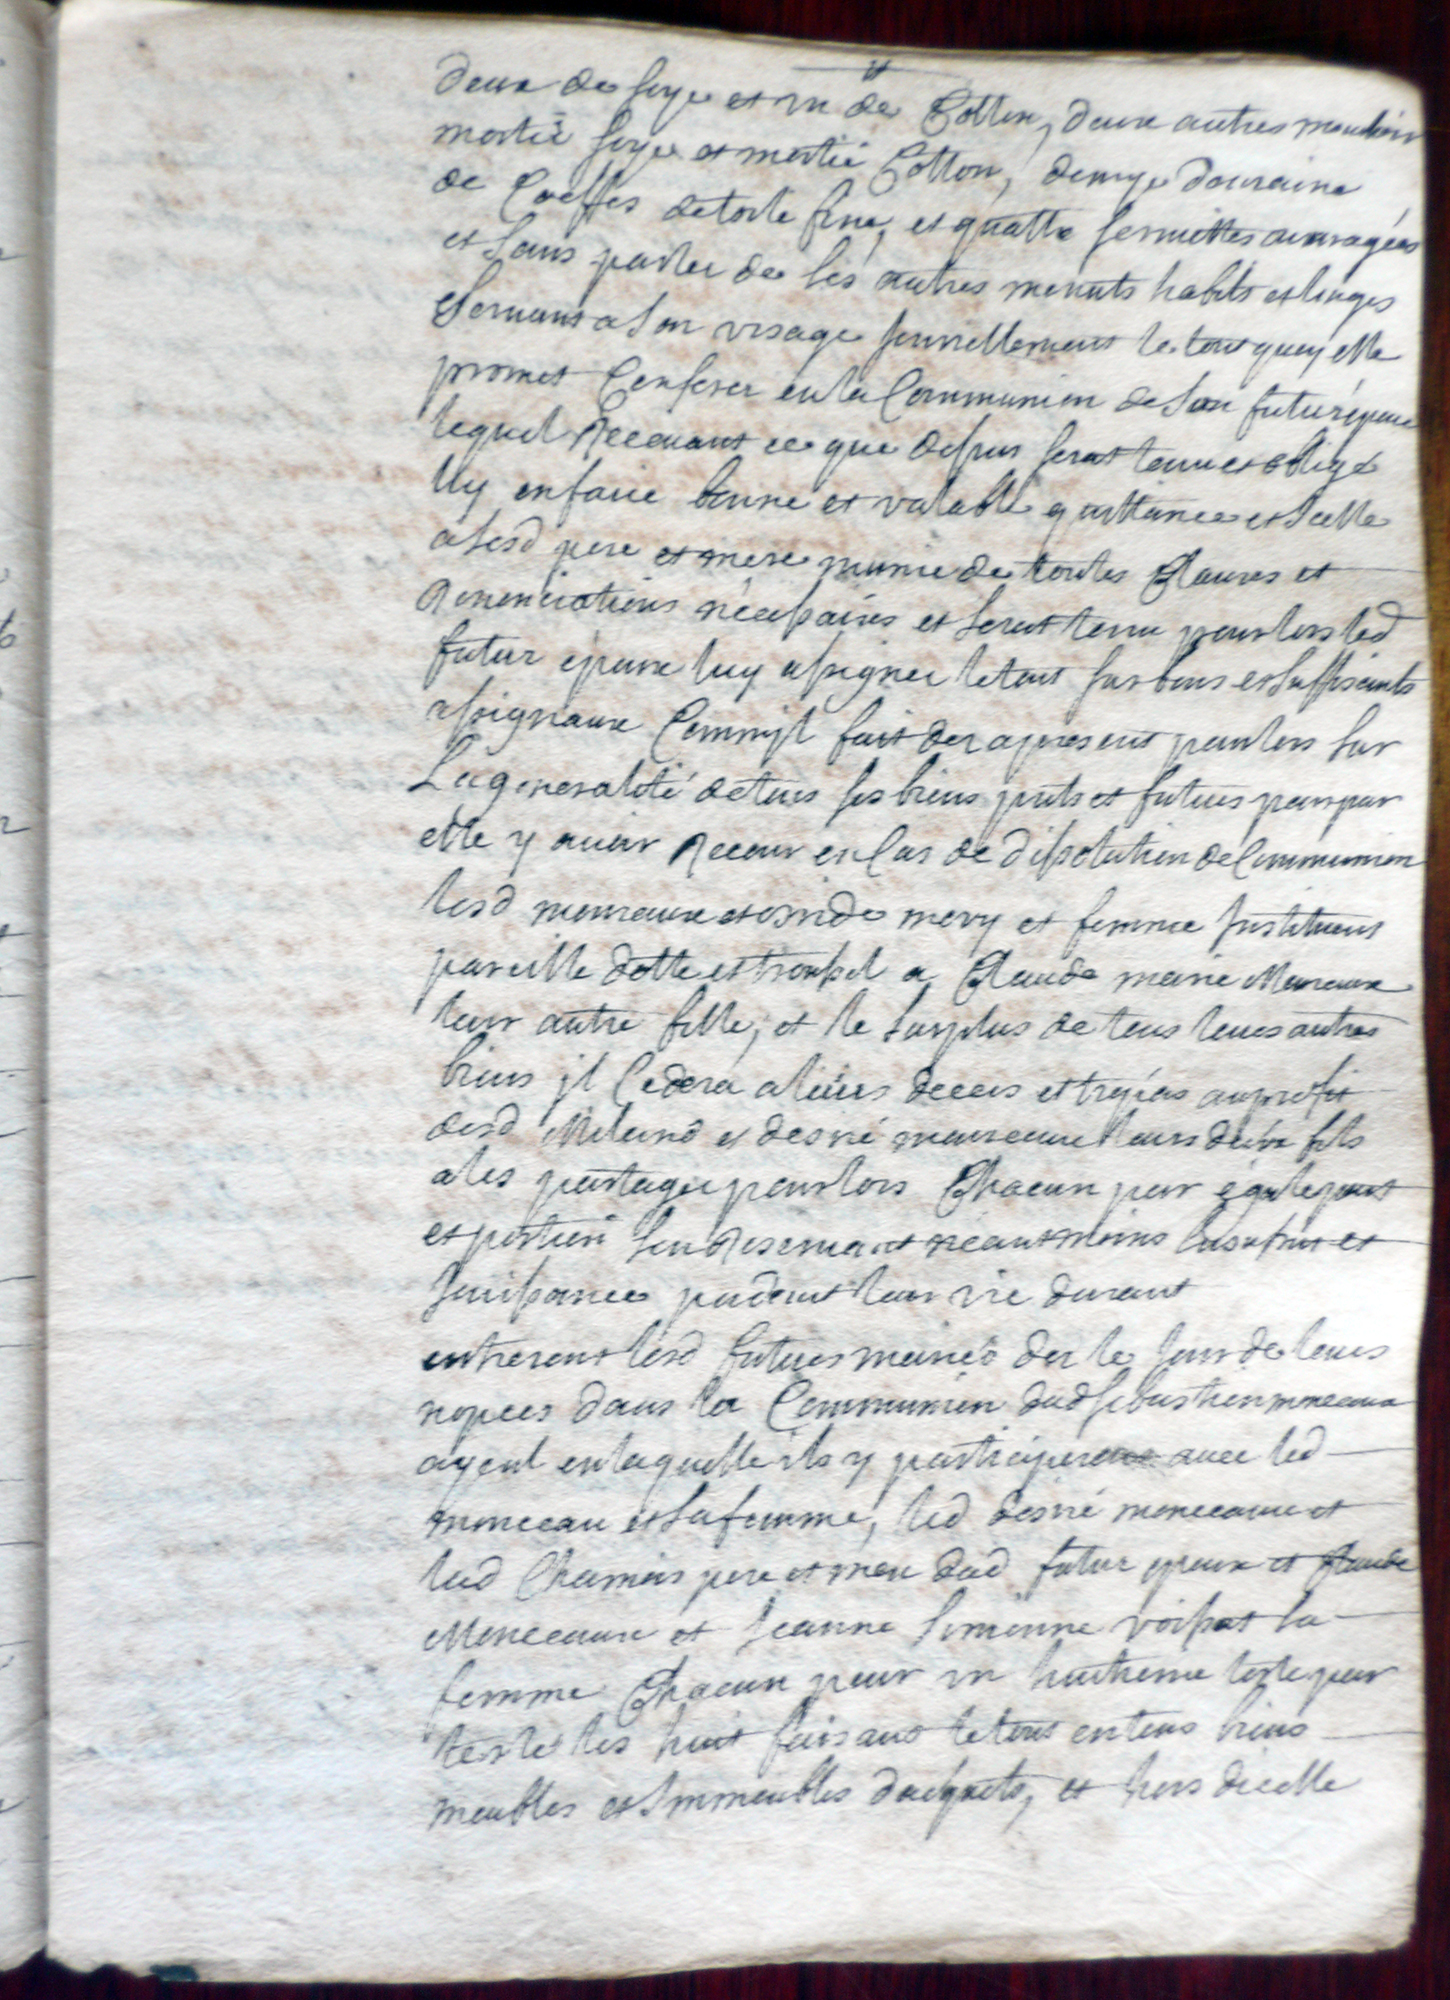 deux de soye et un de Cotton, deux autres mouchoirs
moitié soye et moitié Cotton, demye douzaine
de Coeffes de toile fine, et quattre serviettes ouvragées
et sans parler de ses autres menuts habits et linges
servants a son usage journellement le tout quoy elle
promet Conferer en la Communion de son futur époux
lequel Recevant ce que dessus serat tenu et obligé
luy en faire bonne et valable quittance et icelle
a lesd pere et mere munie de toutes Clauses et
Renonciations nécessaires et serat tenu pour lors led
futur époux luy assigner le tout sur bons et suffisants
assignaux Comm'jl fait des apresent pour lors sur
La generalité de tous ses biens pnts et futurs pour par
elle y avoir Recour en Cas de dissolution de Communion
lesd monceaux et mery et femme Instituent
pareille dotte et troussel a Claude marie Monceaux
leur autre fille, et le surplus de tous leurs autres
biens jl Cedera a leurs deces et trépas au profit
desd Milend et desiré monceaux leurs deux fils
a les partager pour lors Chacun par égale part
et portion s'en Reservant néantmoins l'usufruit et
Jouissance pendant leur vie durant
entreront lesd futurs mariés des le Jour de leurs
nopces dans la Communion dud sebastien monceaux
ayeul en laquelle ils y participeront avec led
monceau et sa femme, led desiré monceaux et
lad Chamois pere et mere dud futur epoux et Claude
Monceaux et Jeanne Simonne voissot sa
femme Chacun pour un huitieme teste par
teste les huit faisant le tout en tous biens
meubles et Immeubles d'acquets, et hors d'icelle